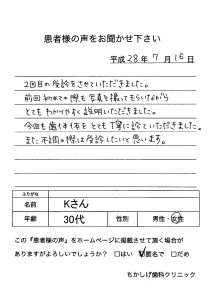 患者様の声をお聞かせ下さい
平成28年7月16日
2回目の検診をさせていただきました。
前回初めての際も写真を撮ってもらいながら
とてもわかりやすく説明いただきました。
今回も歯を1本1本とても丁寧に診ていただきました。
また不調の際は受診したいと思います。
ふりがな
名前 Kさん
年齢 30代 性別 男性・女性
この『患者様の声』をホームページに掲載させて頂く場合が
ありますがよろしいでしょうか？ □はい ☑匿名で □だめ
ちかしげ歯科クリニック